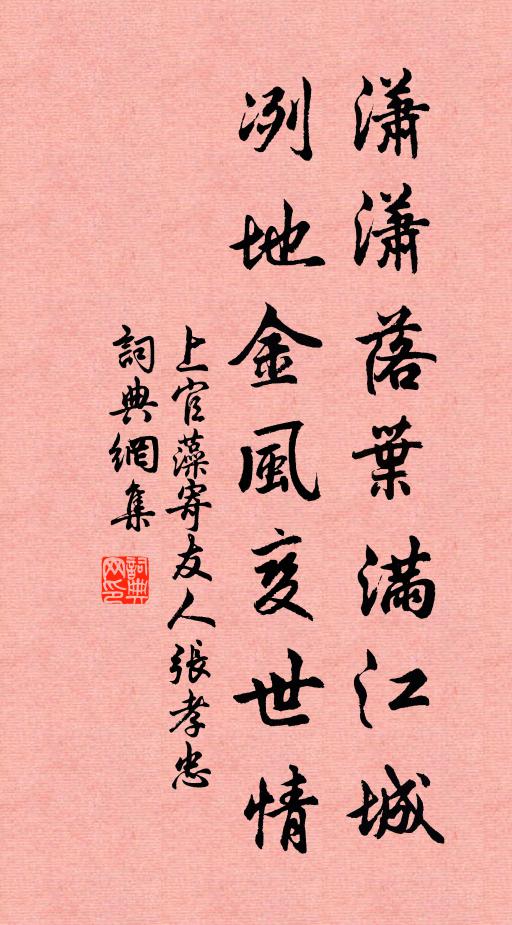 瀟瀟落葉滿江城
冽地金風變世情
上官藻寄友人張孝忠
詞典網集
詞典
网印